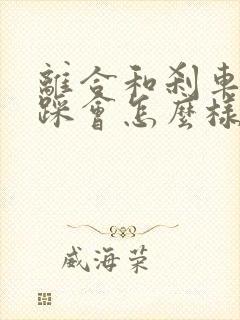 離合和刹車
踩會怎麼樣
威海荣